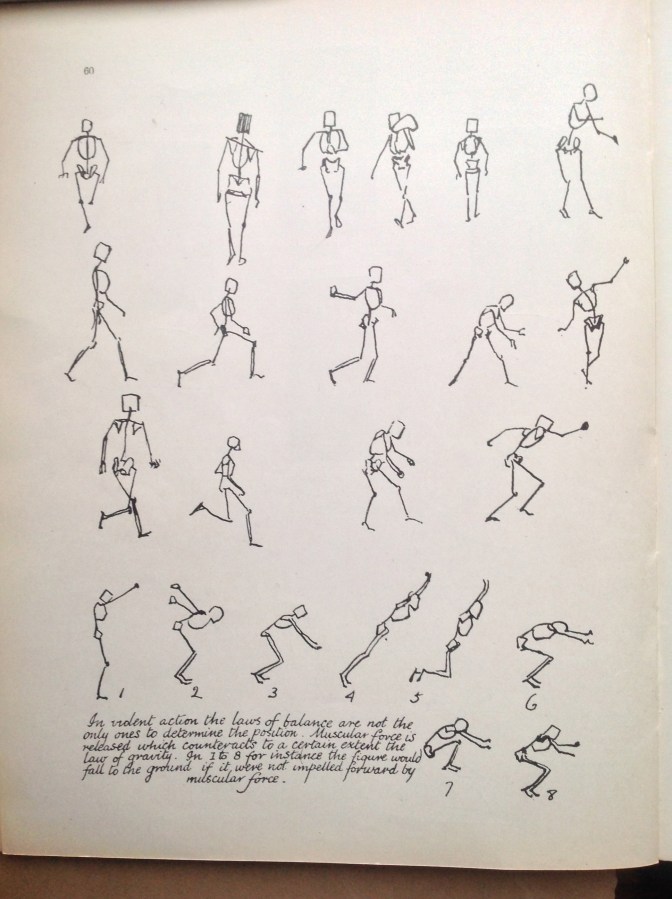 60
1
2
3
4
5
6
In violent action the laws of balance are not the
only ones to determine the position. Muscular force is
released which counteracts to a certain extent the
law of gravity. In 1 to 8 for instance the figure would
fall to the ground if it were not impelled forward by
muscular force.
7
8